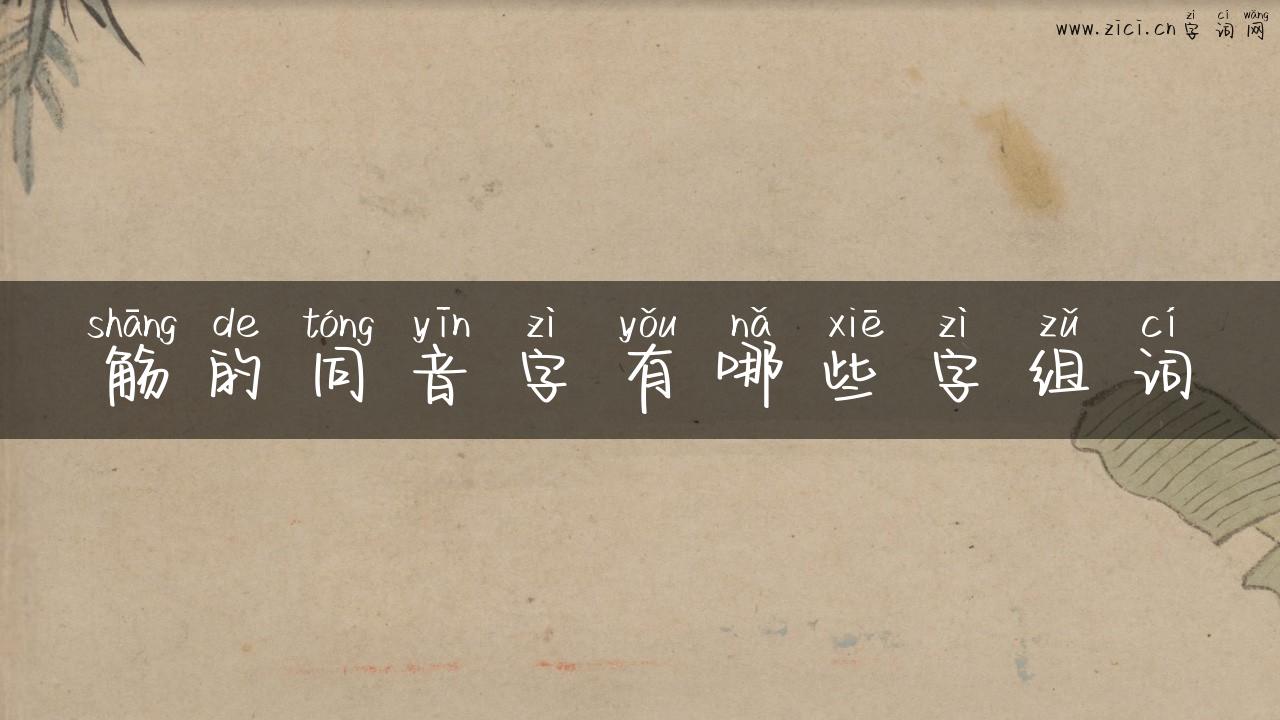 zì cí wǎng
www.zici.cn 字词网
shāng de tóng yīn zì yǒu nǎ xiē zì zǔ cí
觞的同音字有哪些字组词